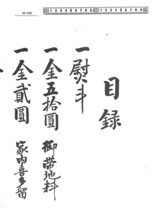 目録
一熨斗
一金五拾圓 御帯地料
一金貳圓 家内喜多留